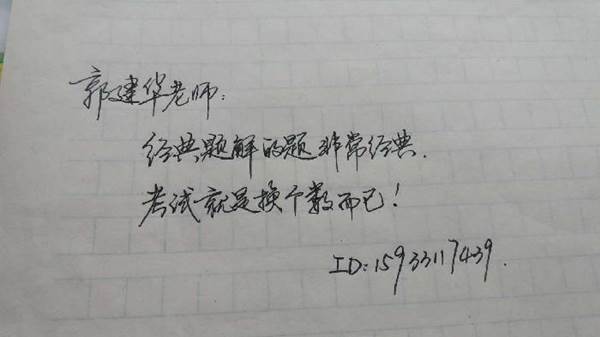 郭建华老师:
经典题解的题非常经典.
考试就是换个数而已!
ID:15933117439.